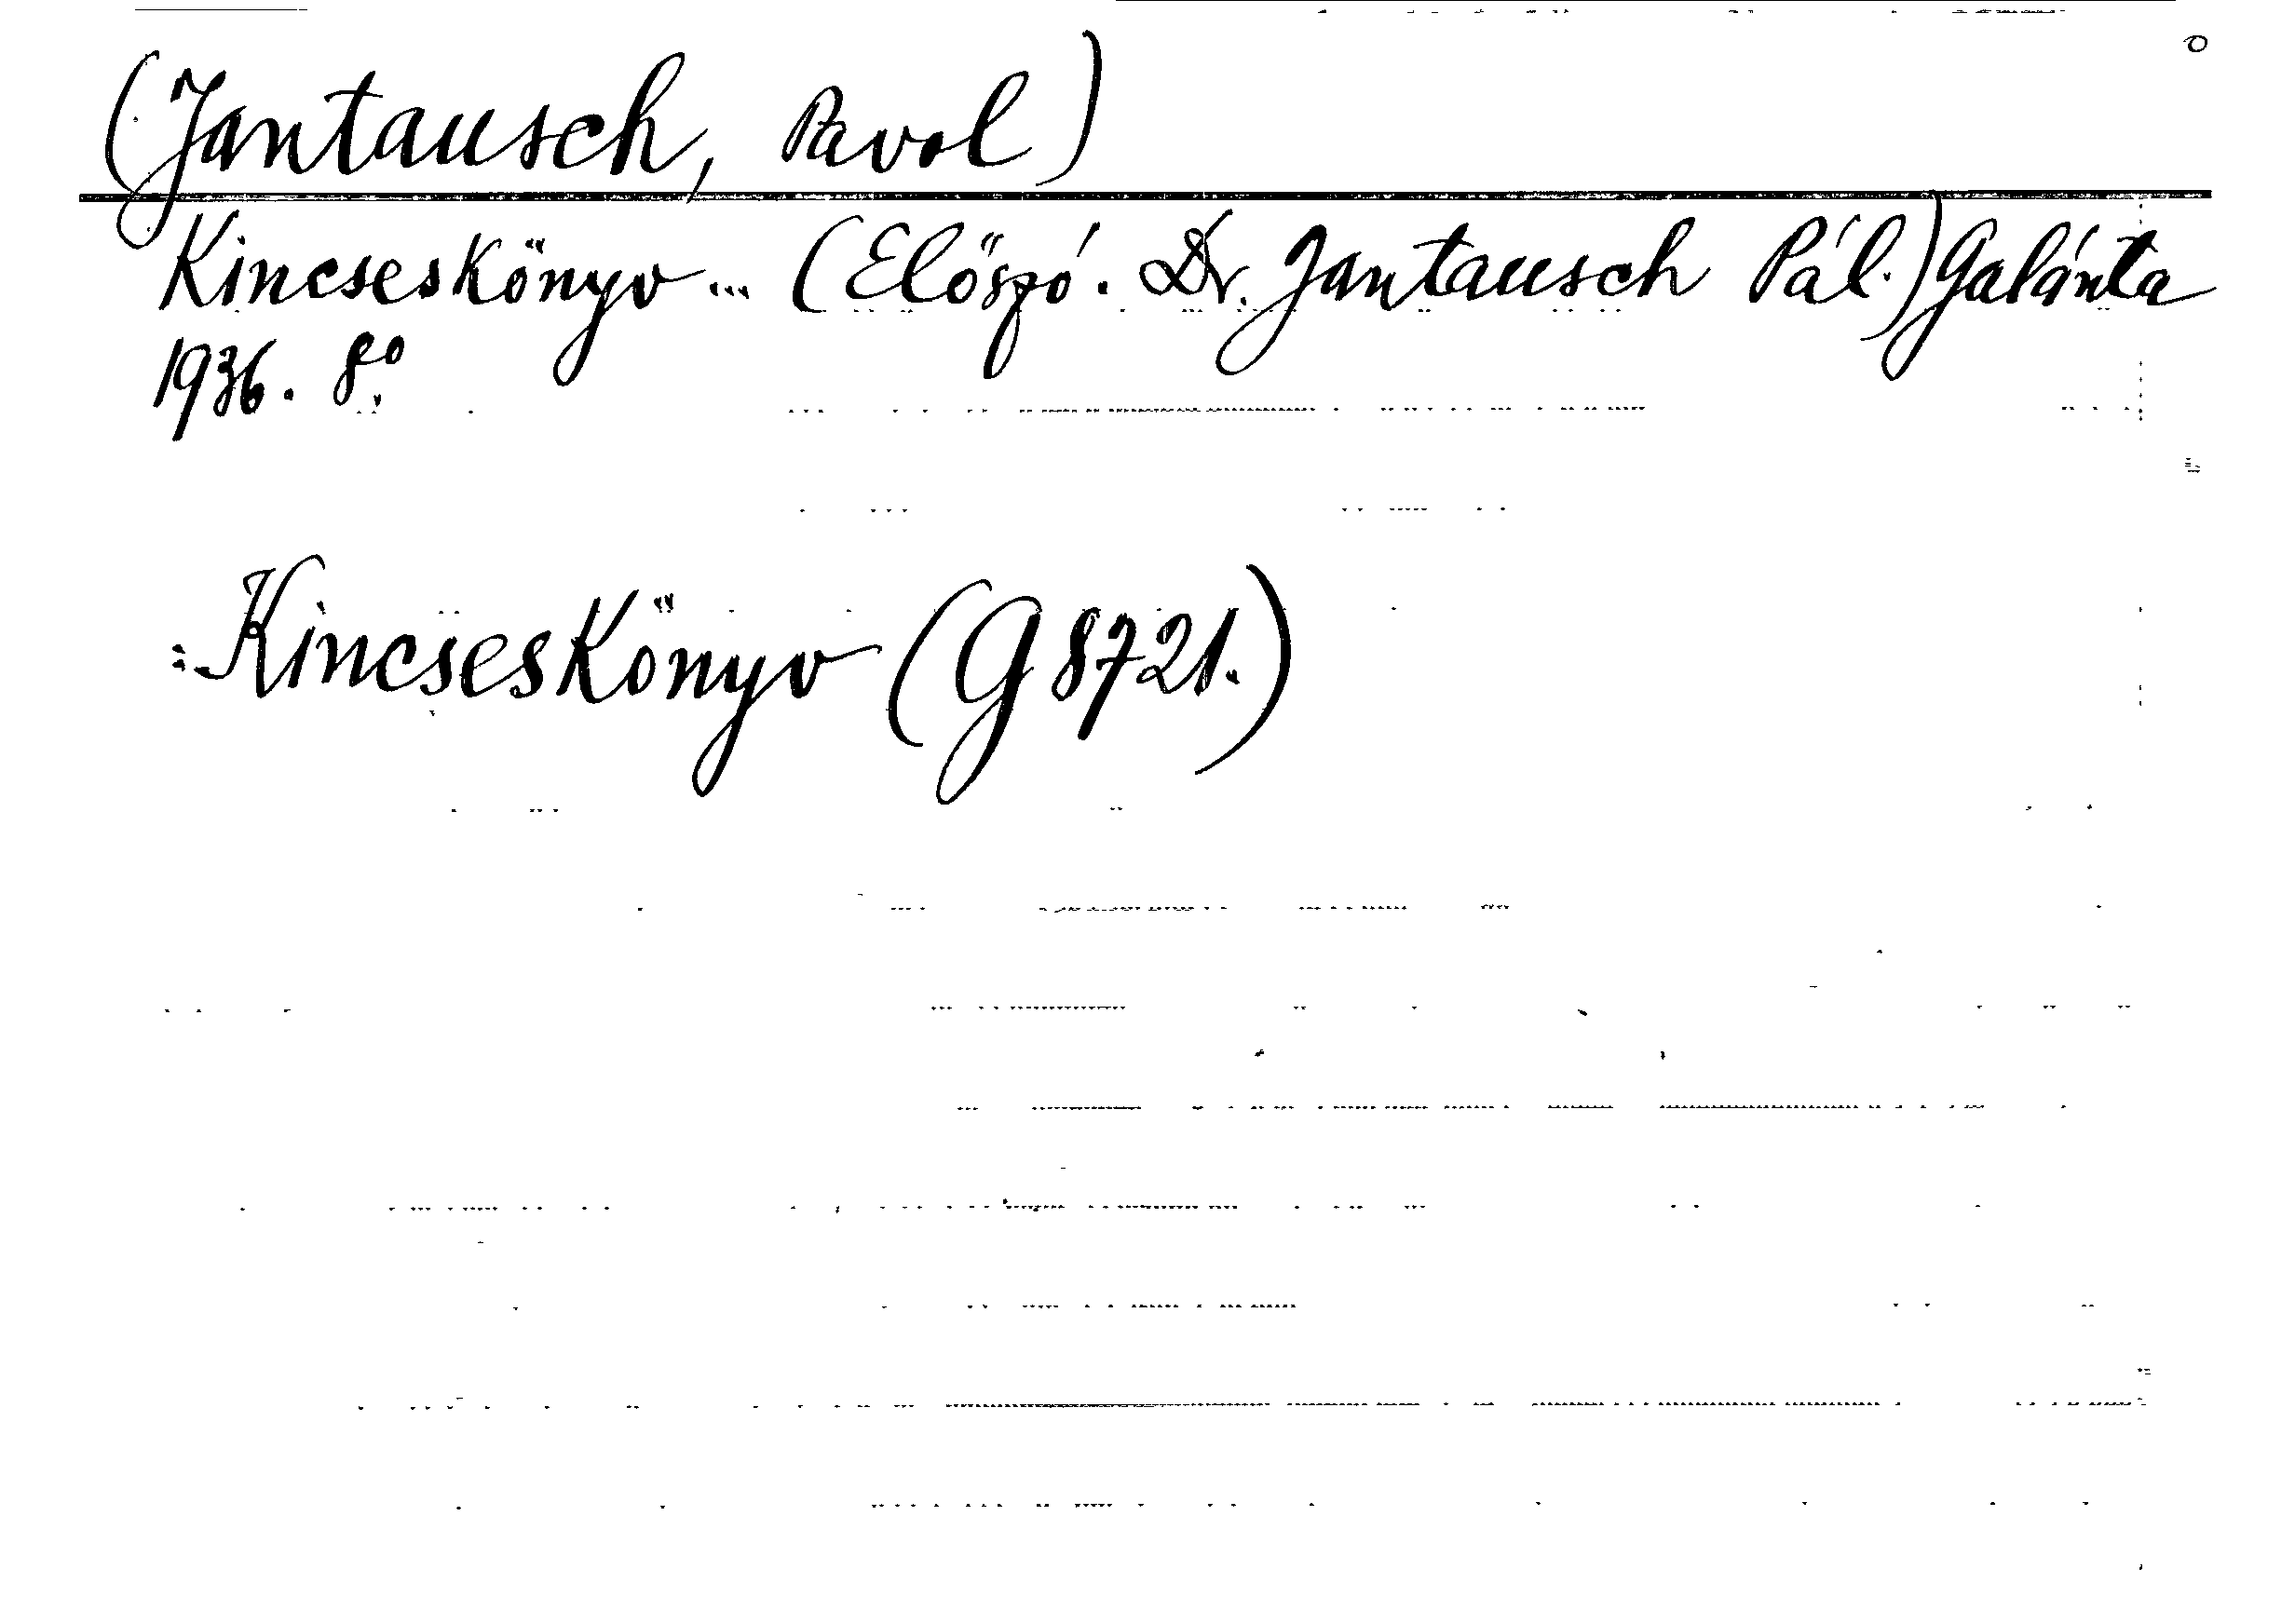 (Jantausch, Pavol)
Kincseskönyv ... (Előszó. Dr. Jantausch Pál.) Galánta
1936. 8⁰.
:-Kincseskönyv (G 8721.)